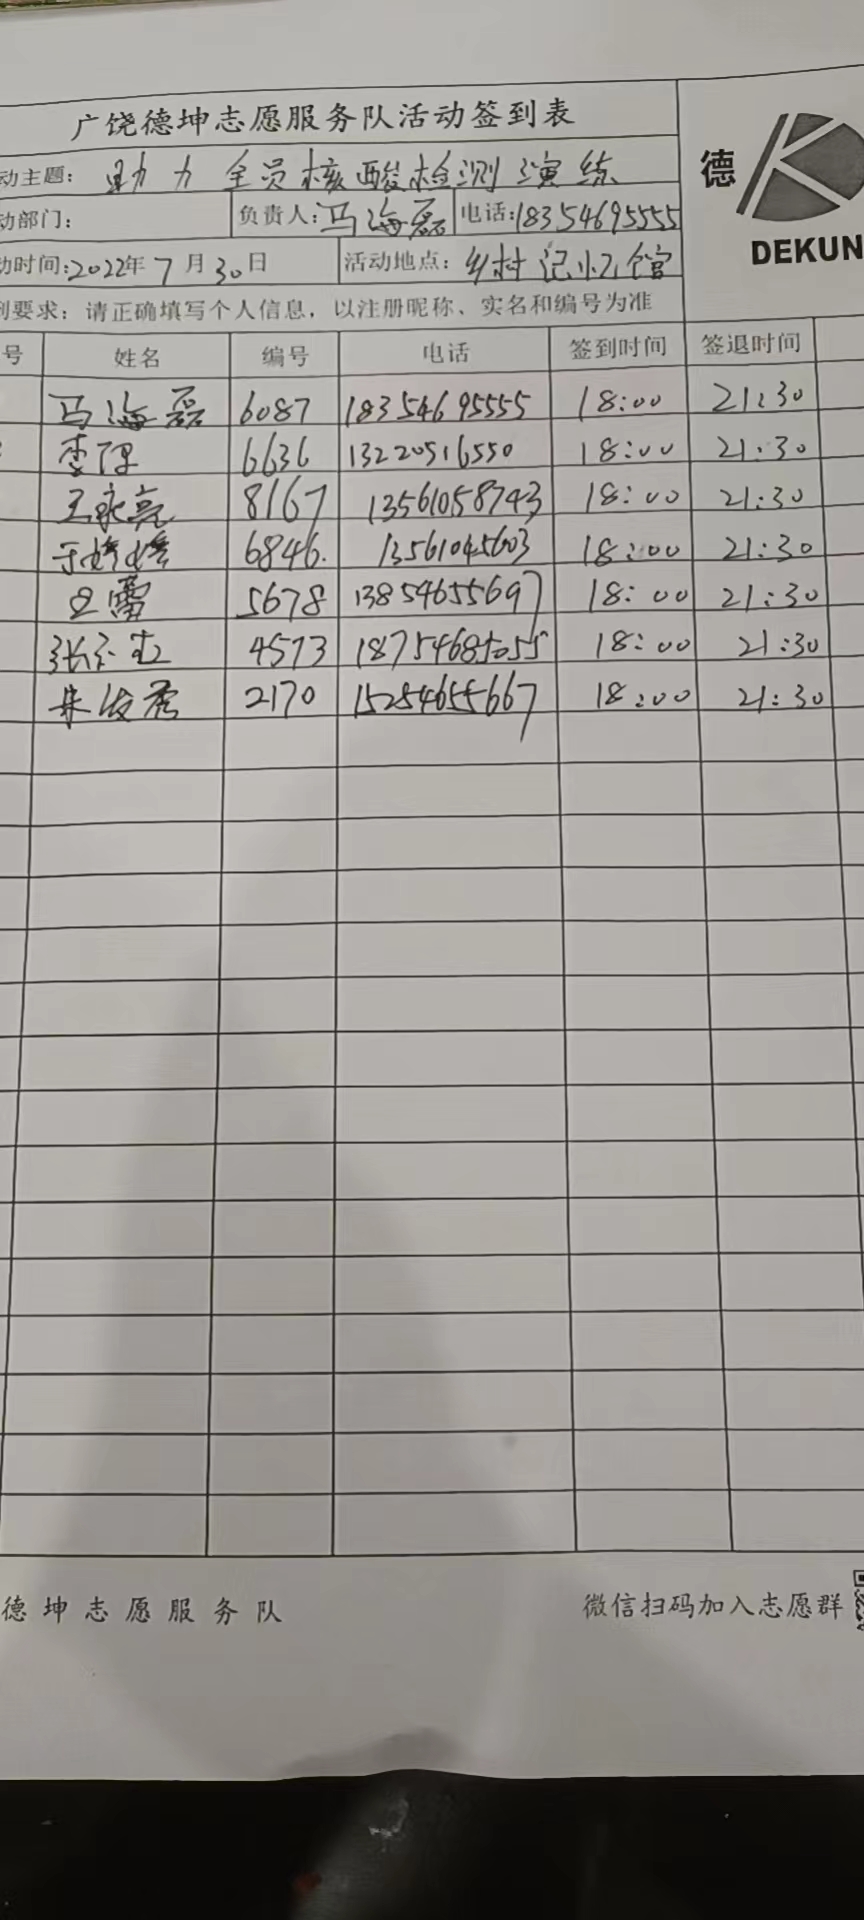 广饶德坤志愿服务队活动签到表
德
DEKUN
动主题: 助力全员核酸检测演练
动部门: 负责人: 马海磊 电话: 18354695555
动时间: 2022年7月30日 活动地点: 乡村记忆馆
到要求: 请正确填写个人信息，以注册昵称、实名和编号为准
号 姓名 编号 电话 签到时间 签退时间
马海磊 6087 18354695555 18:00 21:30
李 6636 13220516550 18:00 21:30
王永亮 8167 13561058743 18:00 21:30
于婷婷 6846. 13561045603 18:00 21:30
雷 5678 13854655697 18:00 21:30
张 4573 18754685055 18:00 21:30
2170 15254655667 18:00 21:30
德坤志愿服务队 微信扫码加入志愿群